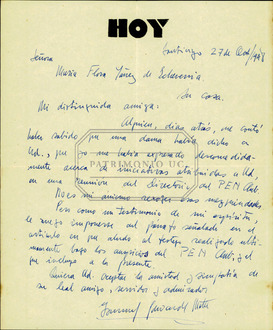 HOY
Santiago, 27 de Oct/1948
Señora
María Flora Yáñez de Echeverría
Su Casa.
Mi distinguida amiga:
Alguien, días atrás, me contó
haber sabido que una dama había dicho a
Ud., que yo me había expresado desconsiderada-
mente acerca de iniciativas atribuidas a Ud.
en una reunión del directorio del PEN Club.
No es mi ánimo recoger esas
Pero como un testimonio de mi espíritu,
le ruego imponerse del párrafo señalado en el
artículo en que aludo al torneo realizado última-
mente bajo los auspicios del PEN Club, y el
que incluyo a la presente.
Quiera Ud. aceptar la amistad y simpatía de
su leal amigo, servidor y admirador
PATRIMONIO UC